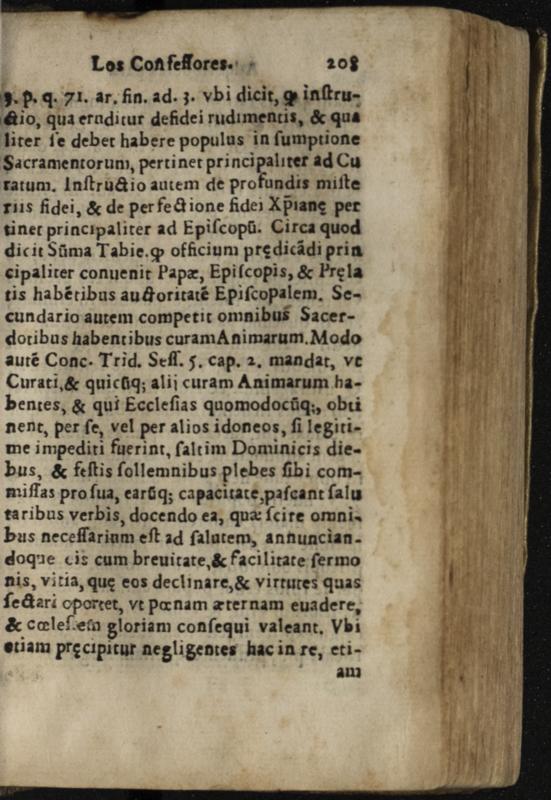 Los Confessores. 208
3. p. q. 71. ar. fin. ad. 3. vbi dicit, ꝙ instru-
ctio, qua eruditur defidei rudimentis, & qua
liter se debet habere populus in sumptione
Sacramentorum, pertinet principaliter ad Cu
ratum. Instructio autem de profundis miste
riis fidei, & de perfectione fidei Xp̄ianę per
tinet principaliter ad Episcopū. Circa quod
dicit Sūma Tabie. ꝙ officium prędicādi prin
cipaliter conuenit Papæ, Episcopis, & Pręla
tis habētibus auctoritatē Episcopalem. Se-
cundario autem competit omnibus Sacer-
dotibus habentibus curam Animarum. Modo
autē Conc. Trid. Seff. 5. cap. 2. mandat, vt
Curati, & quicūq; alij curam Animarum ha-
bentes, & qui Ecclesias quomodocūq;, obti
nent, per se, vel per alios idoneos, si legiti-
me impediti fuerint, saltim Dominicis die-
bus, & festis sollemnibus plebes sibi com-
missas pro sua, earūq; capacitate, pascant salu
taribus verbis, docendo ea, quæ scire omni-
bus necessarium est ad salutem, annuncian-
doque eis cum breuitate, & facilitate sermo
nis, vitia, quę eos declinare, & virtutes quas
sectari oportet, vt pœnam æternam euadere,
& cœlestem gloriam consequi valeant. Vbi
etiam pręcipitur negligentes hac in re, eti-
am